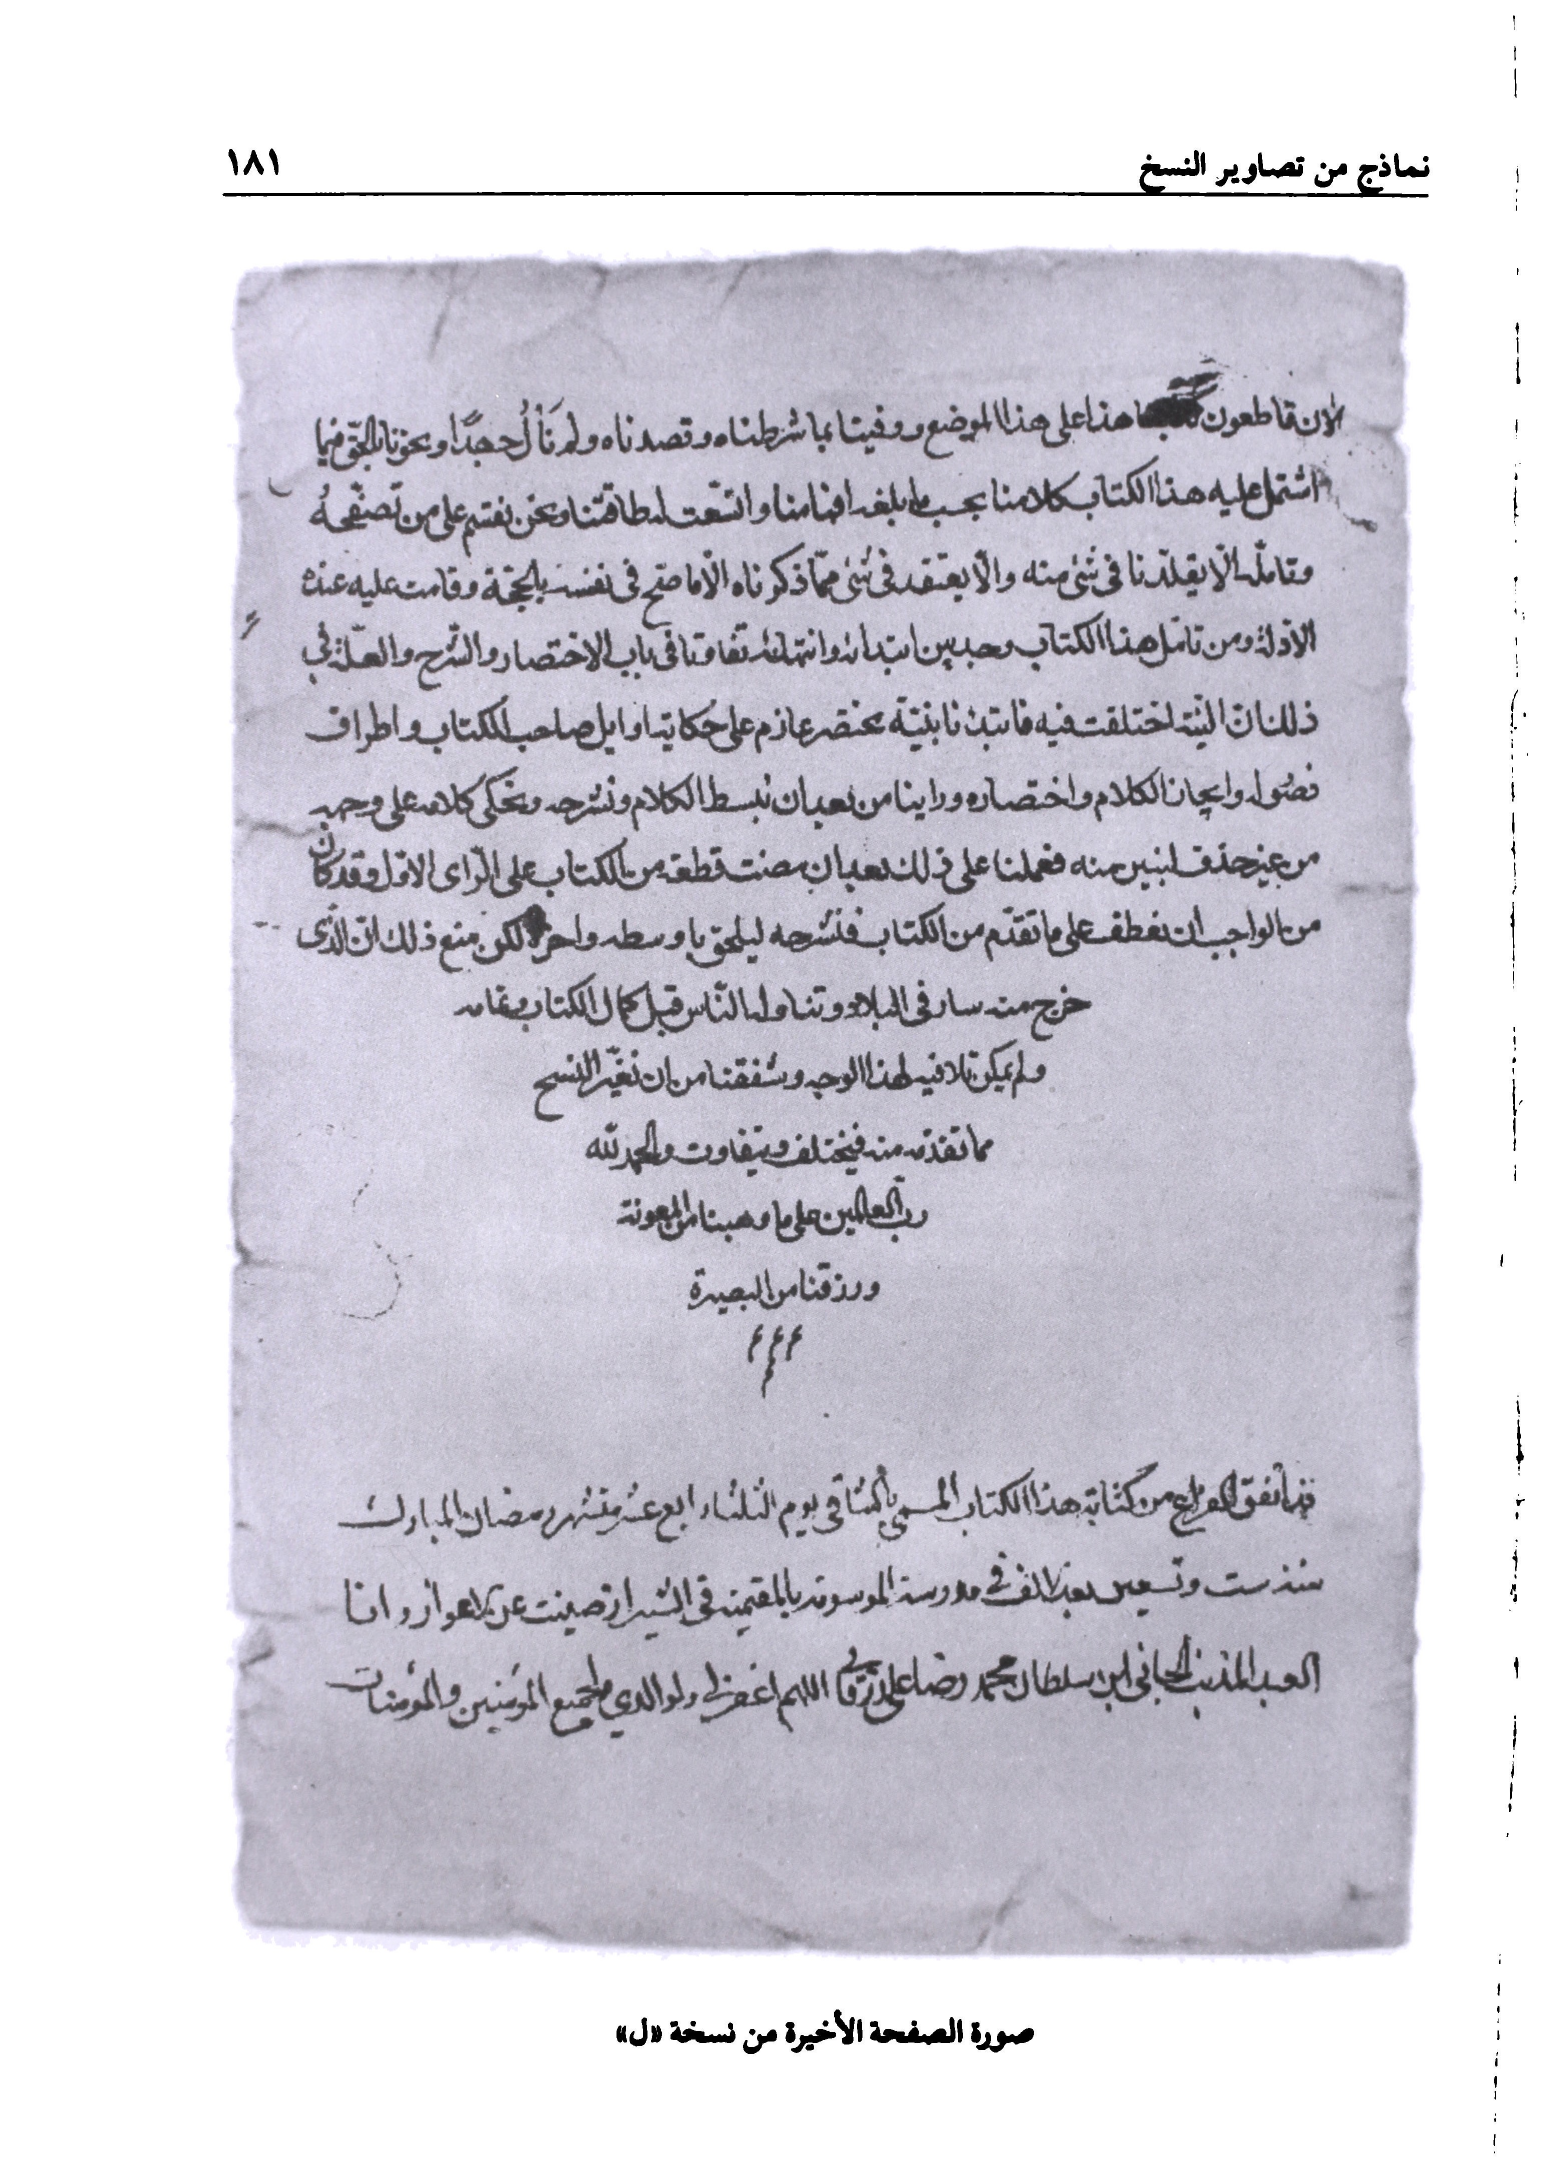 نماذج من تصاوير النسخ ١٨١
الان قاطعون هذا على هذا الموضع ووفينا بما شرطناه وقصدناه ولم نَألُ جهدًا وتحرّينا للحق فيما
اشتمل عليه هذا الكتاب كلامنا بحسب ما بلغه افهامنا واتّسعت له طاقتنا ونحن نقسم على من تصفّحهُ
وتامّله الّا يقلّدنا فى شئ منه والّا يعتقد فى شئ ممّا ذكرناه الّا ما صحّ فى نفسه بالحجّة وقامت عليه عنده
الادلّة ومن تامّل هذا الكتاب وجد بين ابتدائه وانتهائه تفاوتا فى باب الاختصار والشّرح والعلّة فى
ذلك ان النيّة اختلفت فيه فابتدئنا بنيّة مختصر عازم على حكاية اوايل صاحب الكتاب واطراف
فصُوله وايجاز الكلام واختصاره وراينا من بعد ان نبسط الكلام ونشرحه ونحكى كلامه على وجهه
من غير حذف لشئ منه فعملنا على ذلك بعد ان مضت قطعة من الكتاب على الرّاى الاوّل وقد كان
من الواجب ان نعطف على ما تقدّم من الكتاب فنشرحه ليلحق باوسطه واخره لكن منع ذلك انّ الذّى
خرج منه سار فى البلاد وتناوله النّاس قبل كمال الكتاب وتمامه
ولم يمكن تلافيه لهذا الوجه وشفقنا من ان تغيّر النسخ
مما تقدّم منه فيختلف ويتفاوت والحمد لله
ربّ العالمين على ما وهبنا من المعونة
ورزقنا من البصيرة
قد اتفق الفراغ من كتابة هذا الكتاب المسمى بالشافي يوم الثلثاء رابع عشر من شهر رمضان المبارك
سنة ست وتسعين بعد الف في مدرسة الموسومة بالمقيمية في الشيراز صينت عن الاهواز وانا
العبد المذنب الجاني ابن سلطان محمد رضا على اللهم اغفر لي ولوالدي ولجميع المؤمنين والمؤمنات
صورة الصفحة الأخيرة من نسخة «ل»